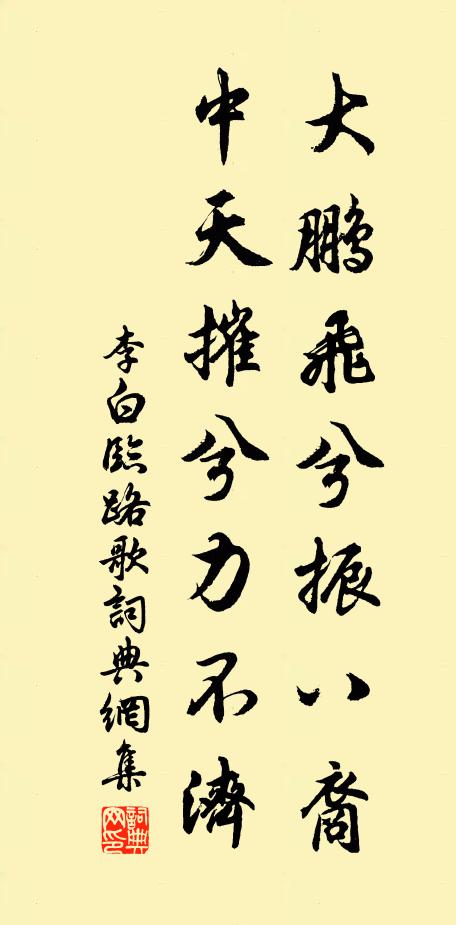 大鵬飛兮振八裔
中天摧兮力不濟
李白臨路歌詞典網集
詞典網印